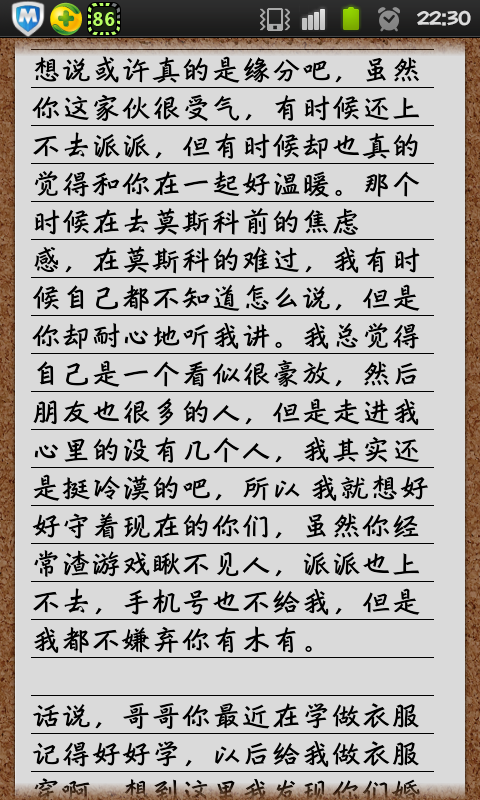 86
22:30
想说或许真的是缘分吧，虽然
你这家伙很受气，有时候还上
不去派派，但有时候却也真的
觉得和你在一起好温暖。那个
时候在去莫斯科前的焦虑
感，在莫斯科的难过，我有时
候自己都不知道怎么说，但是
你却耐心地听我讲。我总觉得
自己是一个看似很豪放，然后
朋友也很多的人，但是走进我
心里的没有几个人，我其实还
是挺冷漠的吧，所以 我就想好
好守着现在的你们，虽然你经
常渣游戏瞅不见人，派派也上
不去，手机号也不给我，但是
我都不嫌弃你有木有。
话说，哥哥你最近在学做衣服
记得好好学，以后给我做衣服
穿啊，想到这里我发现你们婚